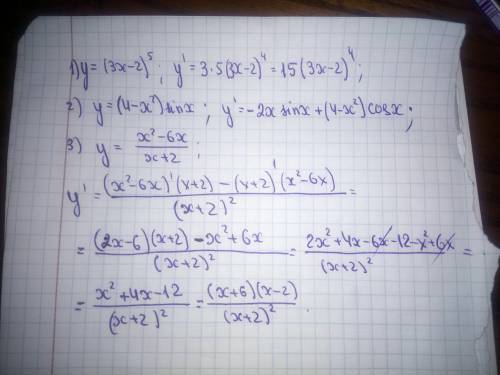 1) y = (3x-2)^5; y' = 3·5(3x-2)^4 = 15(3x-2)^4;
2) y = (4-x²) sinx; y' = -2x sinx + (4-x²) cosx;
3) y = (x²-6x)/(x+2);
y' = ((x²-6x)'(x+2) - (x+2)'(x²-6x))/(x+2)² =
= ((2x-6)(x+2) - x² + 6x)/(x+2)² = (2x²+4x-6x-12-x²+6x)/(x+2)² =
= (x²+4x-12)/(x+2)² = ((x+6)(x-2))/(x+2)².